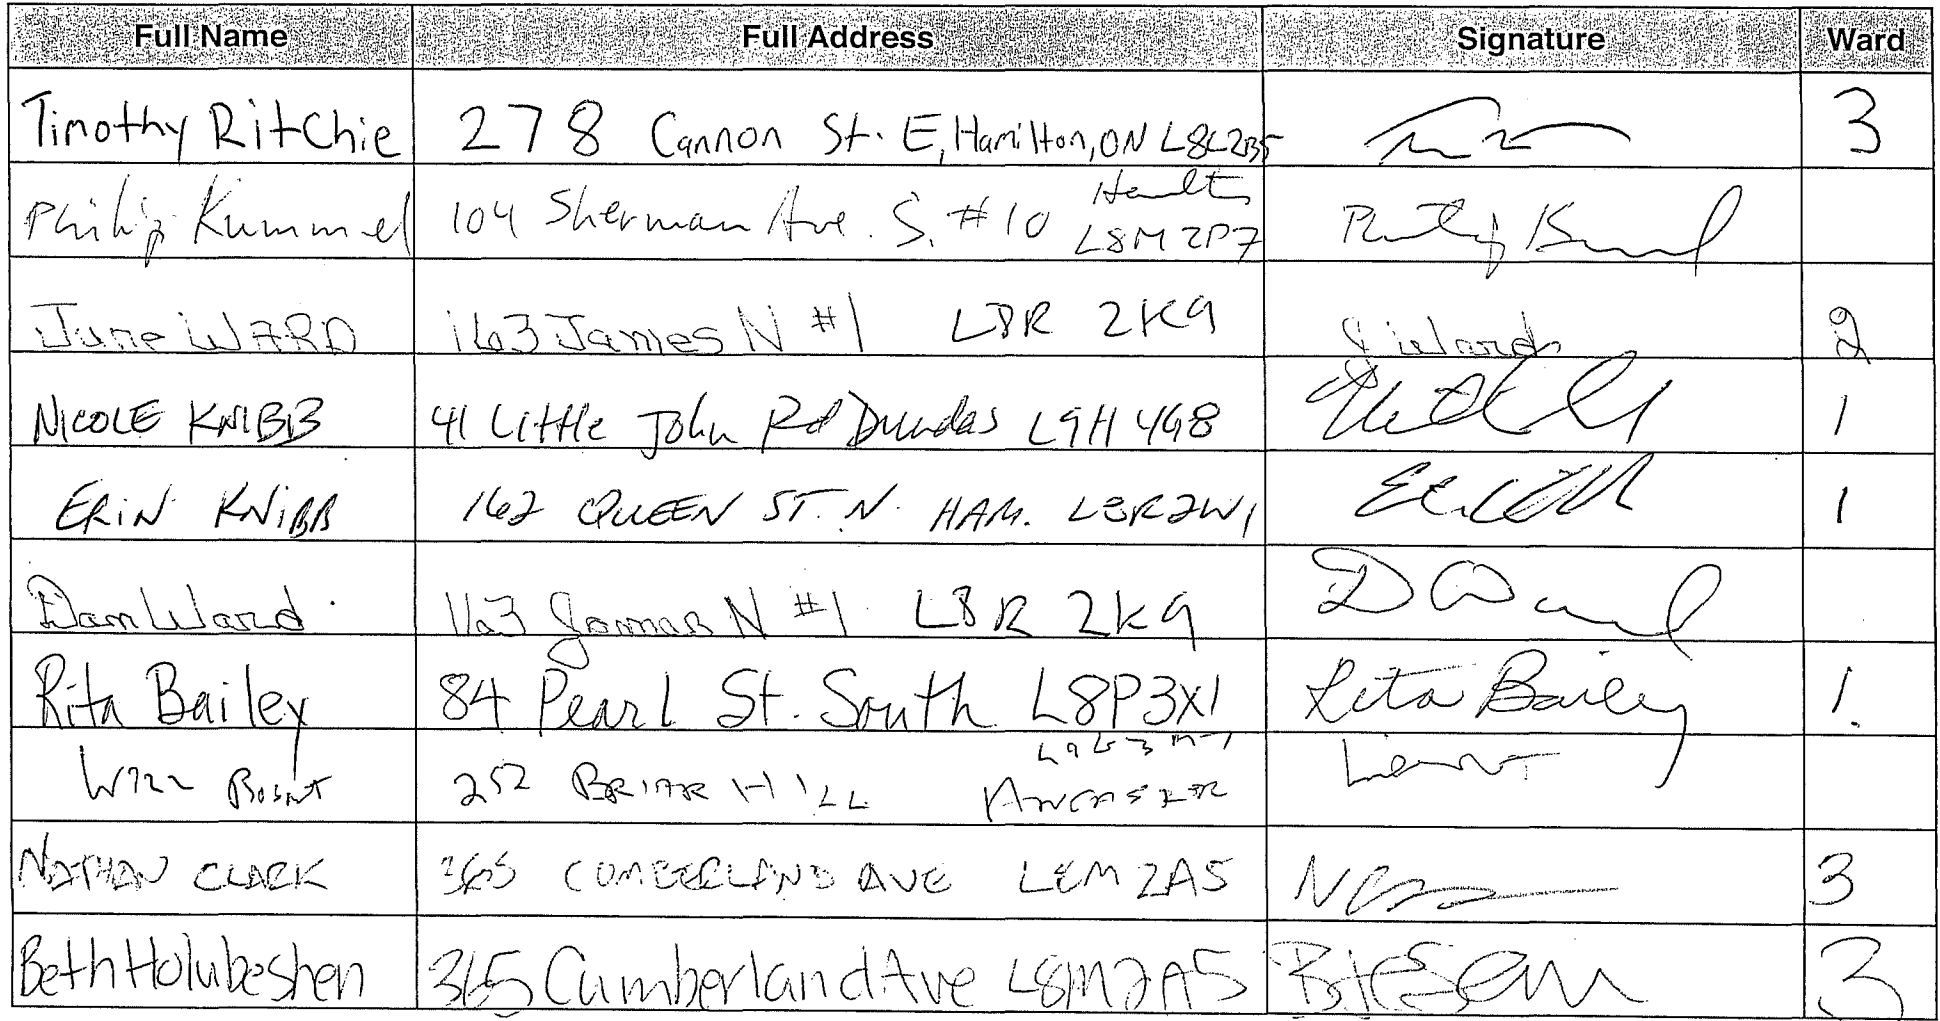 Full Name Full Address Signature Ward
Timothy Ritchie 278 Cannon St. E, Hamilton, ON L8L2B5 3
Philip Kummel 104 Sherman Ave. S. #10 Hamilton L8M 2P7
June WARD 163 James N #1 L8R 2K9 J Ward 2
NICOLE KNIBB 41 Little John Rd Dundas L9H 4G8 1
ERIN KNIBB 162 QUEEN ST. N. HAM. L8R2W1 1
Dan Ward 163 James N #1 L8R 2K9 D Ward
Rita Bailey 84 Pearl St. South L8P3X1 Rita Bailey 1.
252 BRIAR HILL ANCASTER
NATHAN CLARK 365 CUMBERLAND AVE L8M 2A5 3
Beth Holubeshen 365 Cumberland Ave L8M2A5 3